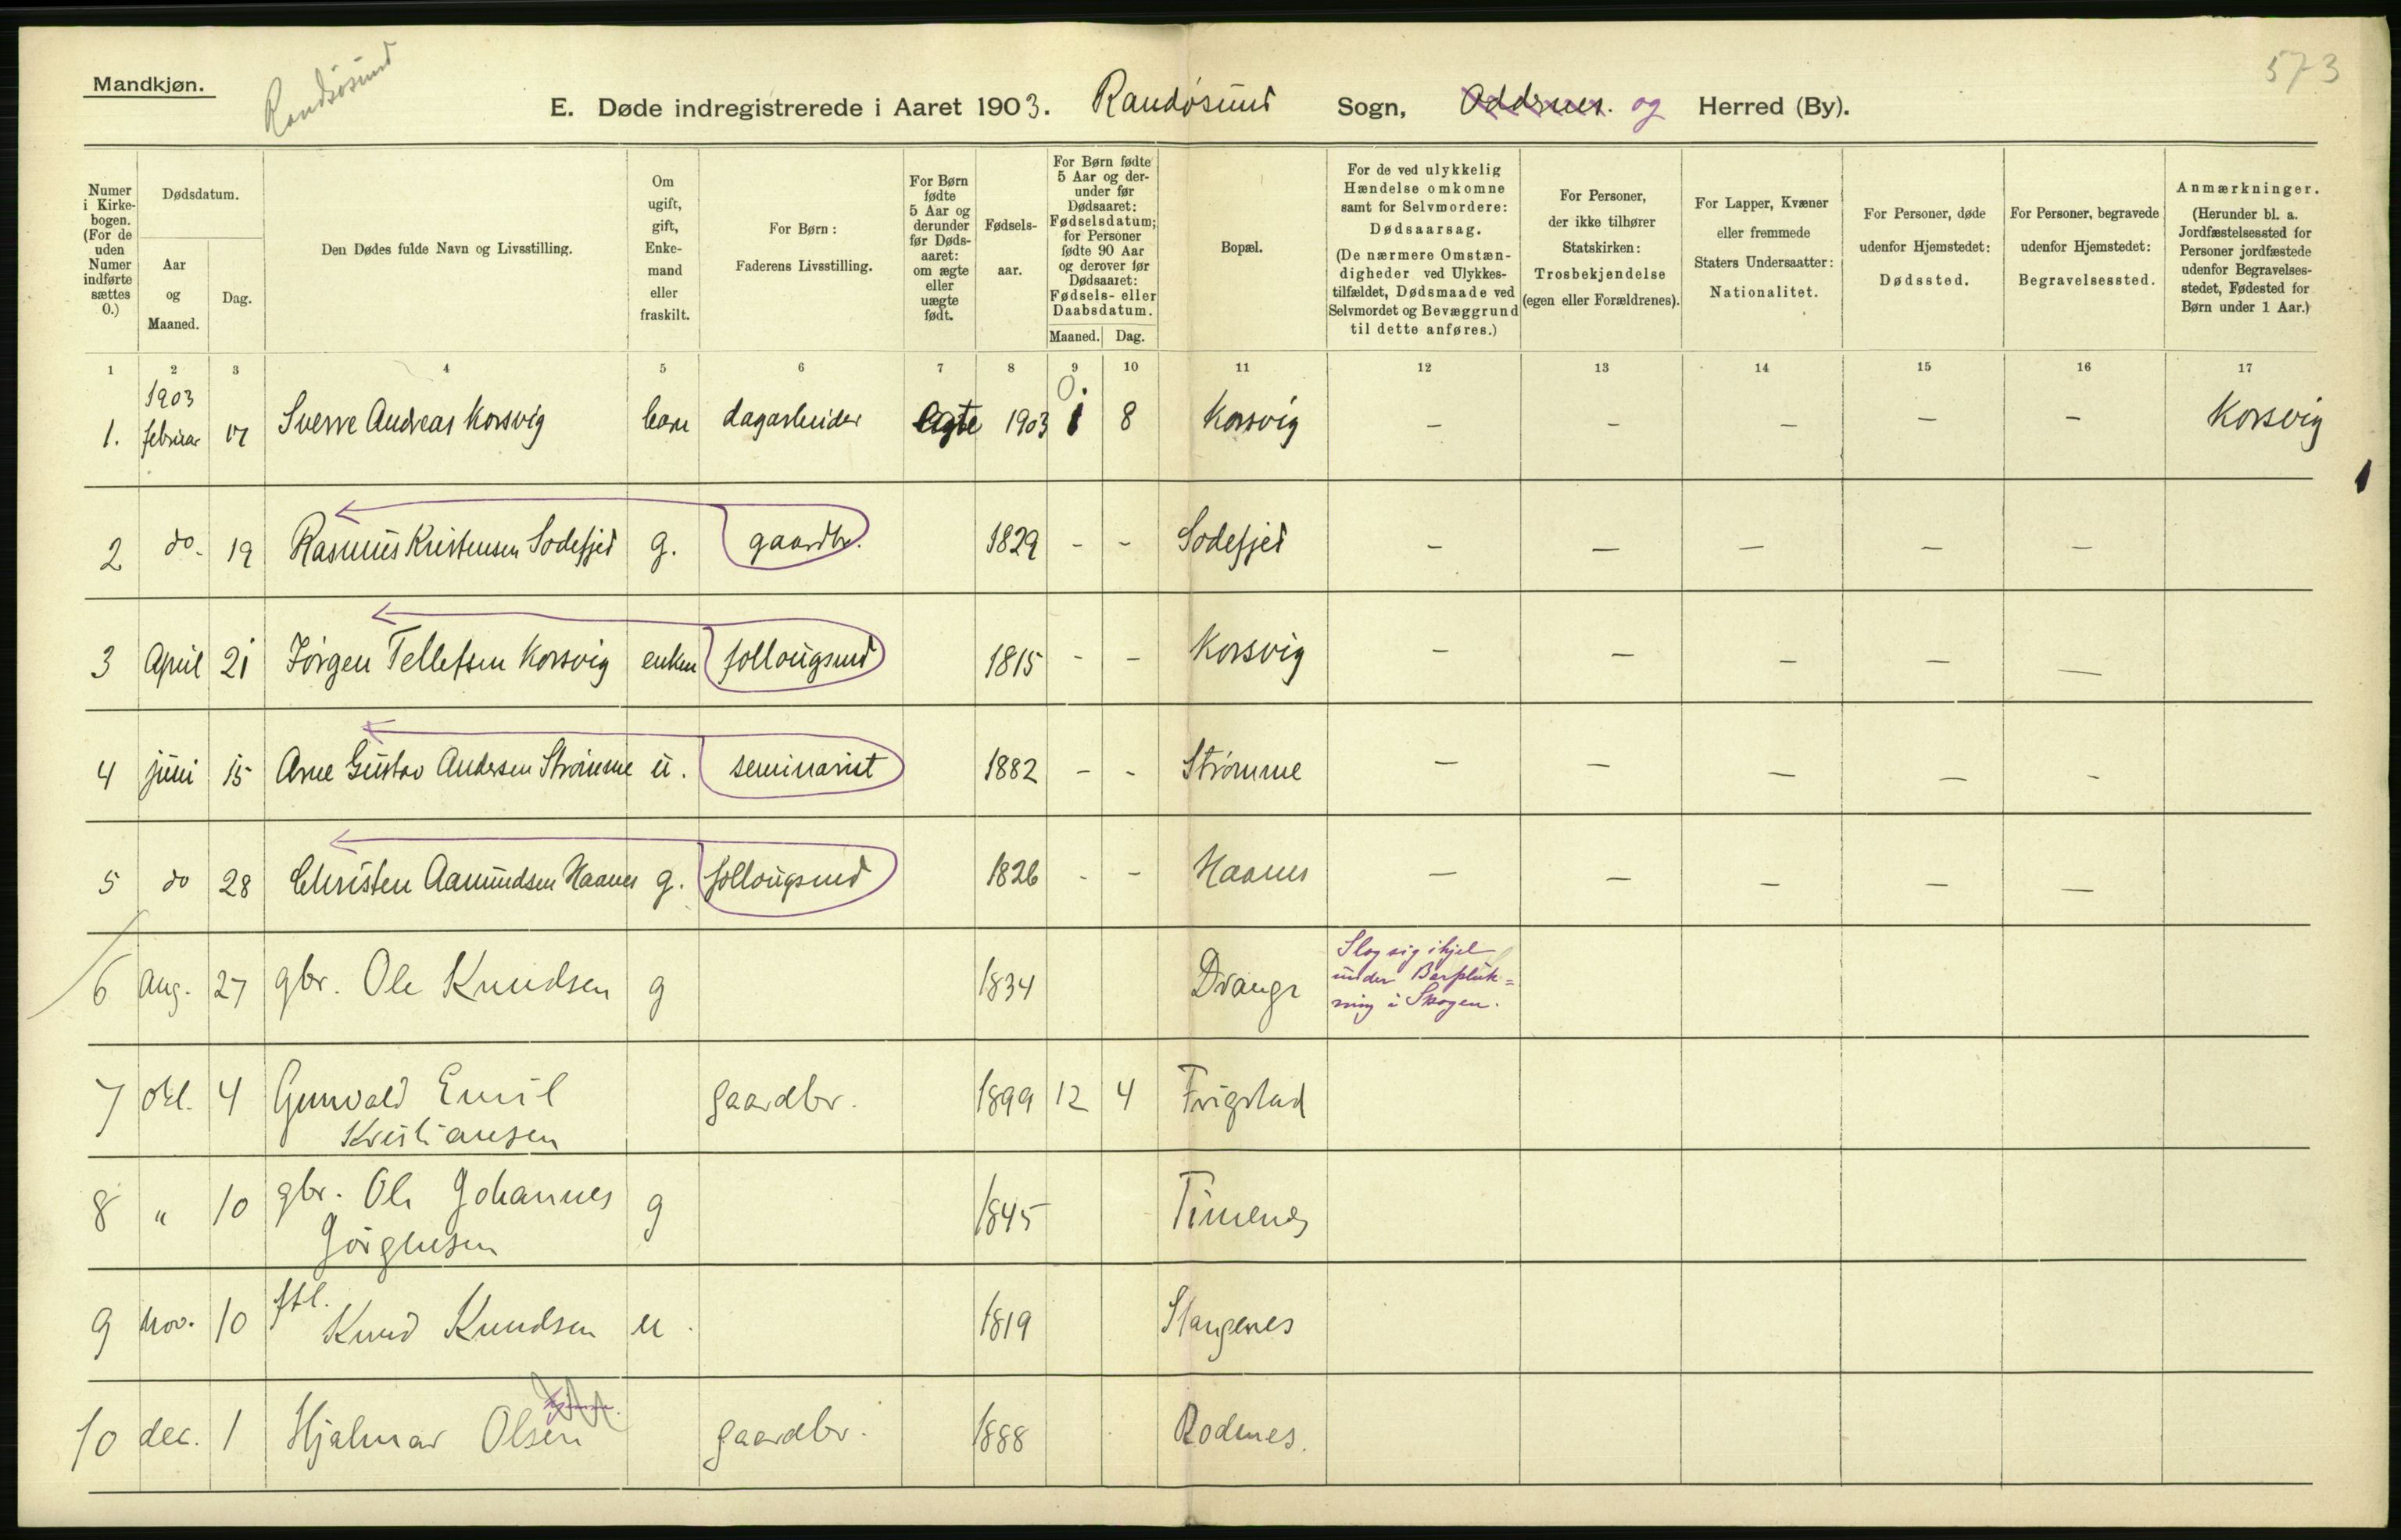 Mandkjøn.
Randøsund
573
E. Døde indregistrerede i Aaret 1903. Randøsund Sogn, Oddernes. og Herred (By).
Numer i Kirke-bogen. (For de uden Numer indførte sættes 0.)
Dødsdatum.
Aar og Maaned.
Dag.
Den Dødes fulde Navn og Livsstilling.
Om ugift, gift, Enke-mand eller fraskilt.
For Børn: Faderens Livsstilling.
For Børn fødte 5 Aar og derunder før Døds-aaret: om ægte eller uægte født.
Fødsels-aar.
For Børn fødte 5 Aar og der-under før Dødsaaret: Fødselsdatum; for Personer fødte 90 Aar og derover før Dødsaaret: Fødsels- eller Daabsdatum.
Maaned. Dag.
Bopæl.
For de ved ulykkelig Hændelse omkomne samt for Selvmordere: Dødsaarsag. (De nærmere Omstæn-digheder ved Ulykkes-tilfældet, Dødsmaade ved Selvmordet og Bevæggrund til dette anføres.)
For Personer, der ikke tilhører Statskirken: Trosbekjendelse (egen eller Forældrenes).
For Lapper, Kvæner eller fremmede Staters Undersaatter: Nationalitet.
For Personer, døde udenfor Hjemstedet: Dødssted.
For Personer, begravede udenfor Hjemstedet: Begravelsessted.
Anmærkninger. (Herunder bl. a. Jordfæstelsessted for Personer jordfæstede udenfor Begravelses-stedet, Fødested for Børn under 1 Aar.)
1 2 3 4 5 6 7 8 9 10 11 12 13 14 15 16 17
1903
1. februar 17 Sverre Andreas Korsvig barn dagarbeider Ægte 1903 1 8 Korsvig – – – – – Korsvig
2 do. 19 Rasmus Kristensen Sodefjed g. gaardbr. 1829 - - Sodefjed – – – – –
3 April 21 Jørgen Tellefsen Korsvig enkem follougsmd 1815 - - Korsvig – – – – –
4 juni 15 Arne Gustav Andersen Strømme u. seminarist 1882 - - Strømme – – – – -
5 do 28 Christen Aamundsen Haanes g. follougsmd 1826 - - Haanes – – – – –
6 Aug. 27 gbr. Ole Knudsen g 1834 Drange Slog sig ihjel
under Bærpluk=
ning i Skogen.
7 okt. 4 Gunvald Emil gaardbr. 1899 12 4 Frigstad
Kristiansen
8 " 10 gbr. Ole Johannes g 1845 Timenes
Jørgensen
9 Nov. 10 ftl. Knud Knudsen u. 1819 Stangenes
10 dec. 1 Hjalmar Olsen gaardbr. 1888 Rodnes.